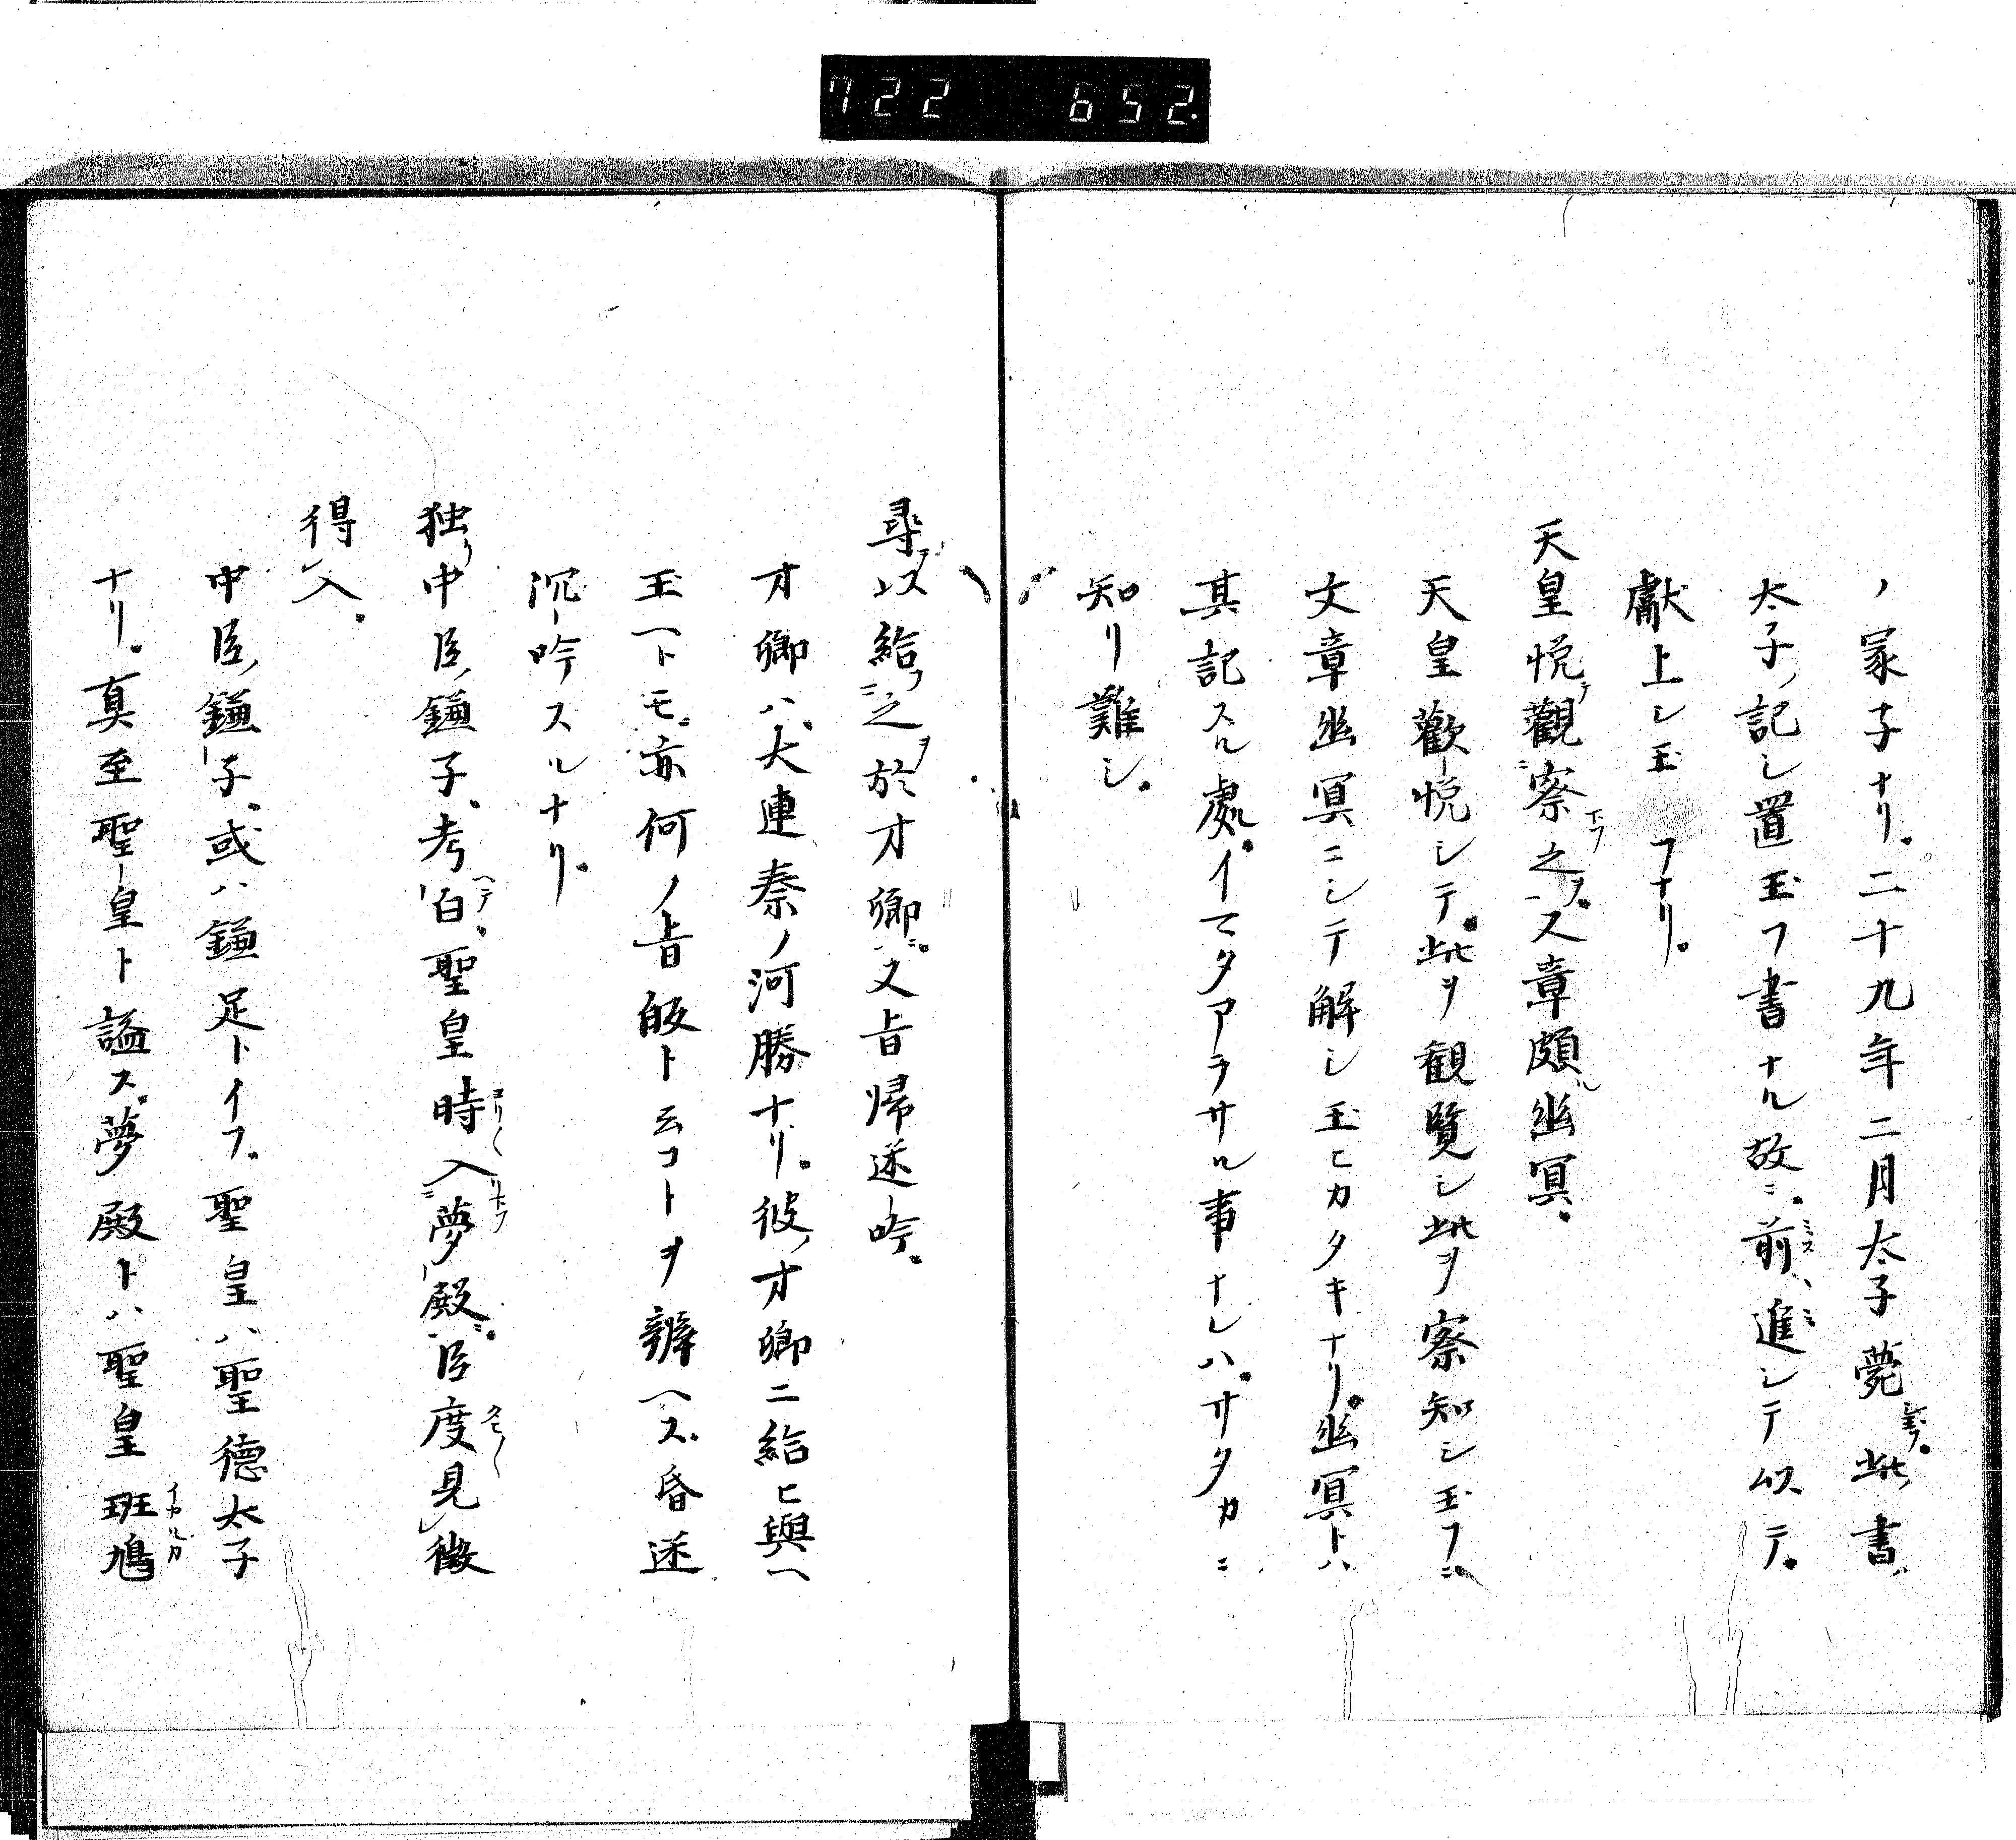 722 652.
ノ冡子ナリ。二十九年二月太子薨玉フ。此書ハ
太子ノ記シ置玉フ書ナル故ニ。前ミスヽミ進シテ以テ。
獻上シ玉フナリ。
天皇悦テ觀ニ察玉フ之ヲ。文章頗ル幽冥。
天皇歡悦シテ。此ヲ観覧シ此ヲ察知シ玉フニ。
文章幽冥ニシテ解シ玉ヒカタキナリ。幽冥トハ
其記スル處。イマタアラサル事ナレハ。サタカニ
知リ難シ。
尋テ以給フニ之ヲ於才卿ニ。文旨帰迷吟。
才卿ハ、大連秦ノ河勝ナリ。彼ノ才卿ニ給ヒ與ヘ
玉ヘトモ。亦何ノ旨皈ト云コトヲ辨ヘス。昏迷
沉吟スルナリ。
独リ中臣ノ鎌子。考ヘテ白。聖皇時ヨリ〱入リ玉フ夢殿ニ。臣度タヒ〱見レ徴
得レ入。
中臣ノ鎌子。或ハ鎌足トイフ。聖皇ハ聖徳太子
ナリ。真至聖皇ト謚ス。夢殿トハ聖皇班鳩イカルカ